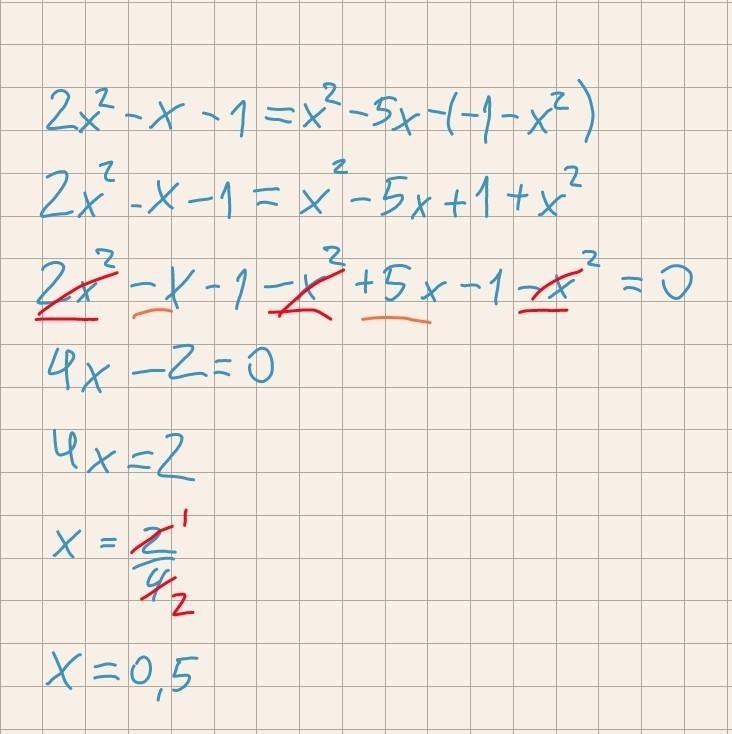 2x² - x - 1 = x² - 5x - (-1 - x²)
2x² - x - 1 = x² - 5x + 1 + x²
2x² - x - 1 - x² + 5x - 1 - x² = 0
4x - 2 = 0
4x = 2
x = 2/4 1 2
x = 0,5